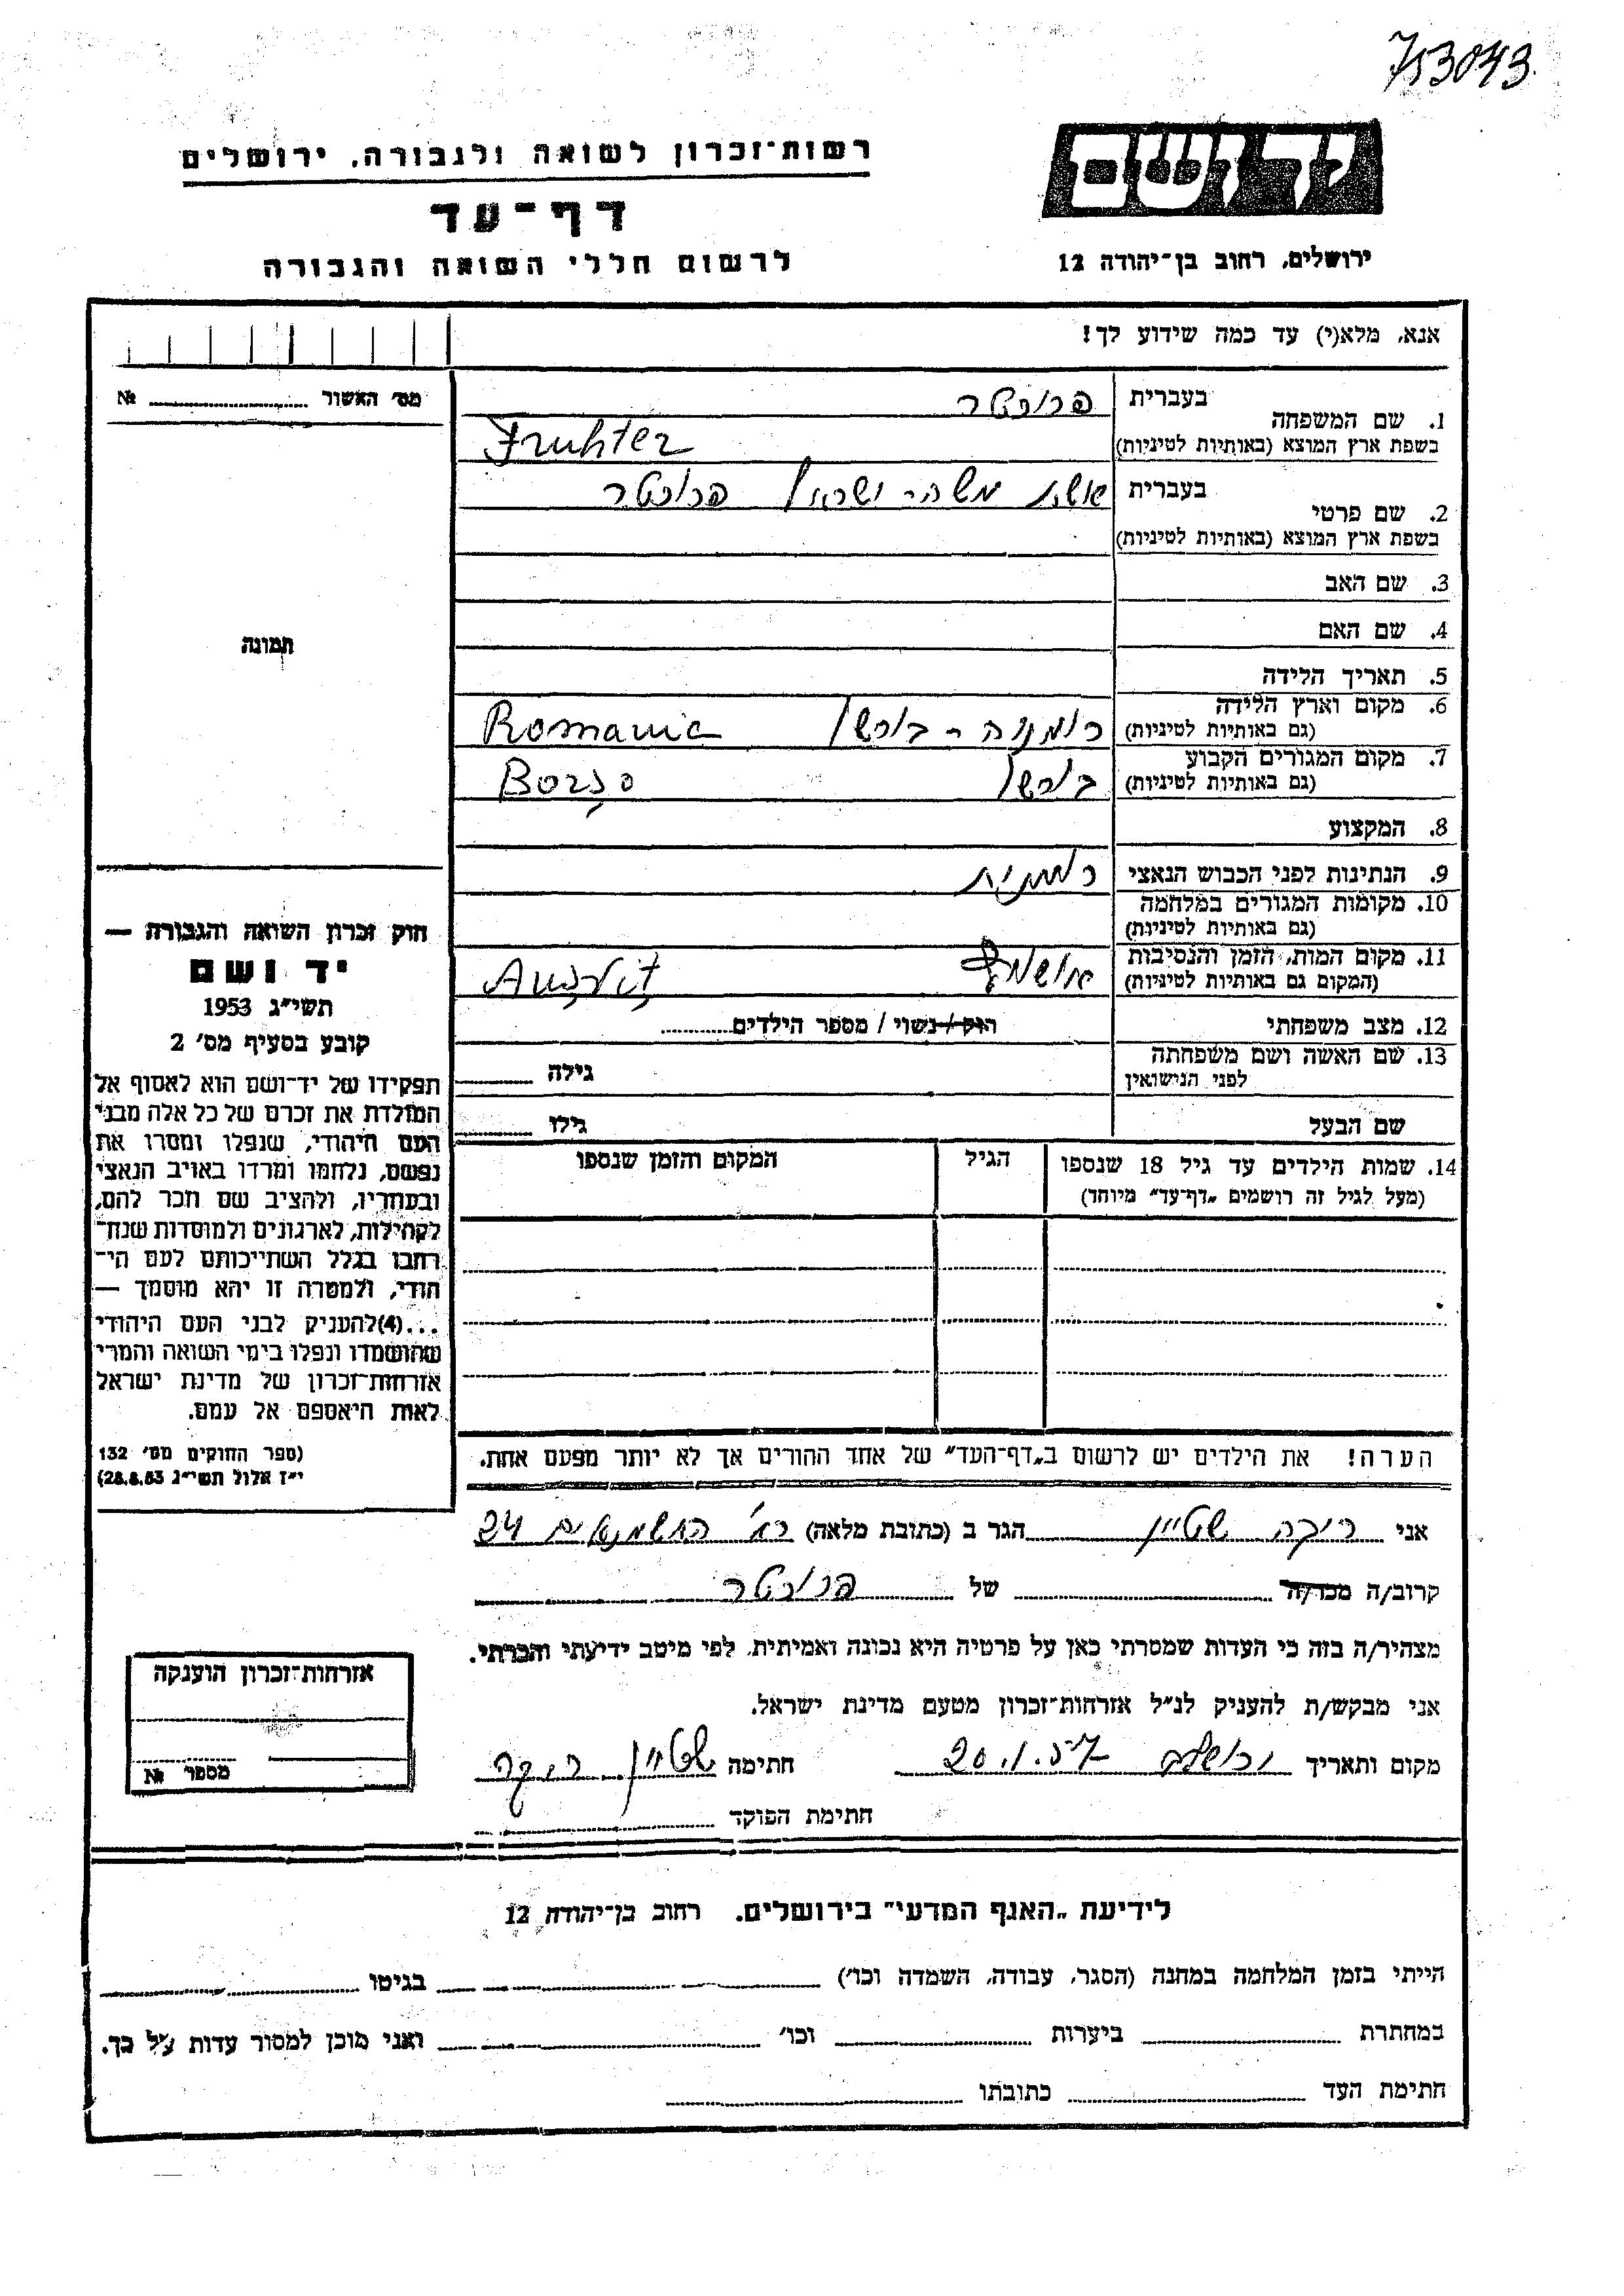 753043
יד ושם
רשות־זכרון לשואה ולגבורה, ירושלים
דף־עד
לרשום חללי השואה והגבורה
ירושלים, רחוב בן־יהודה 12
אנא, מלא(י) עד כמה שידוע לך!
מס׳ האשור № 
תמונה
1. שם המשפחה
בעברית פרוכטר
בשפת ארץ המוצא (באותיות לטיניות) Fruhter
2. שם פרטי
בעברית אשת משה־ישראל פרוכטר
בשפת ארץ המוצא (באותיות לטיניות)
3. שם האב
4. שם האם
5. תאריך הלידה
6. מקום וארץ הלידה
(גם באותיות לטיניות) רומניה - בורשא Romania
7. מקום המגורים הקבוע
(גם באותיות לטיניות) בורשא Borșo
8. המקצוע
9. הנתינות לפני הכבוש הנאצי רומנית
10. מקומות המגורים במלחמה
(גם באותיות לטיניות)
11. מקום המות, הזמן והנסיבות
(המקום גם באותיות לטיניות)
12. מצב משפחתי רוק / נשוי / מספר הילדים
13. שם האשה ושם משפחתה
לפני הנישואין גילה
שם הבעל גילו
14. שמות הילדים עד גיל 18 שנספו הגיל המקום והזמן שנספו
(מעל לגיל זה רושמים „דף־עד״ מיוחד)
הערה! את הילדים יש לרשום ב„דף־העד״ של אחד ההורים אך לא יותר מפעם אחת.
חוק זכרון השואה והגבורה —
יד ושם
תשי״ג 1953
קובע בסעיף מס׳ 2
תפקידו של יד־ושם הוא לאסוף אל
המולדת את זכרם של כל אלה מבני
העם היהודי, שנפלו ומסרו את
נפשם, נלחמו ומרדו באויב הנאצי
ובעוזריו, ולהציב שם וזכר להם,
לקהילות, לארגונים ולמוסדות שנח־
רבו בגלל השתייכותם לעם הי־
הודי, ולמטרה זו יהא מוסמך —
...(4)להעניק לבני העם היהודי
שהושמדו ונפלו בימי השואה והמרי
אזרחות־זכרון של מדינת ישראל
לאות היאספם אל עמם.
(ספר החוקים מס׳ 132
י״ז אלול תשי״ג 28.8.53)
אני ריבה שטיין הגר ב (כתובת מלאה) רח׳ החשמונאים 24
קרוב/ה מכר/ה של פרוכטר
מצהיר/ה בזה כי העדות שמסרתי כאן על פרטיה היא נכונה ואמיתית, לפי מיטב ידיעתי והכרתי.
אני מבקש/ת להעניק לנ״ל אזרחות־זכרון מטעם מדינת ישראל.
מקום ותאריך ירושלים 20.1.57 חתימה שטיין
חתימת הפוקד
אזרחות־זכרון הוענקה
מספר №
לידיעת „האגף המדעי״ בירושלים. רחוב בן־יהודה 12
הייתי בזמן המלחמה במחנה (הסגר, עבודה, השמדה וכו׳) בגיטו
במחתרת ביערות וכו׳ ואני מוכן למסור עדות על כך.
חתימת העד כתובתו